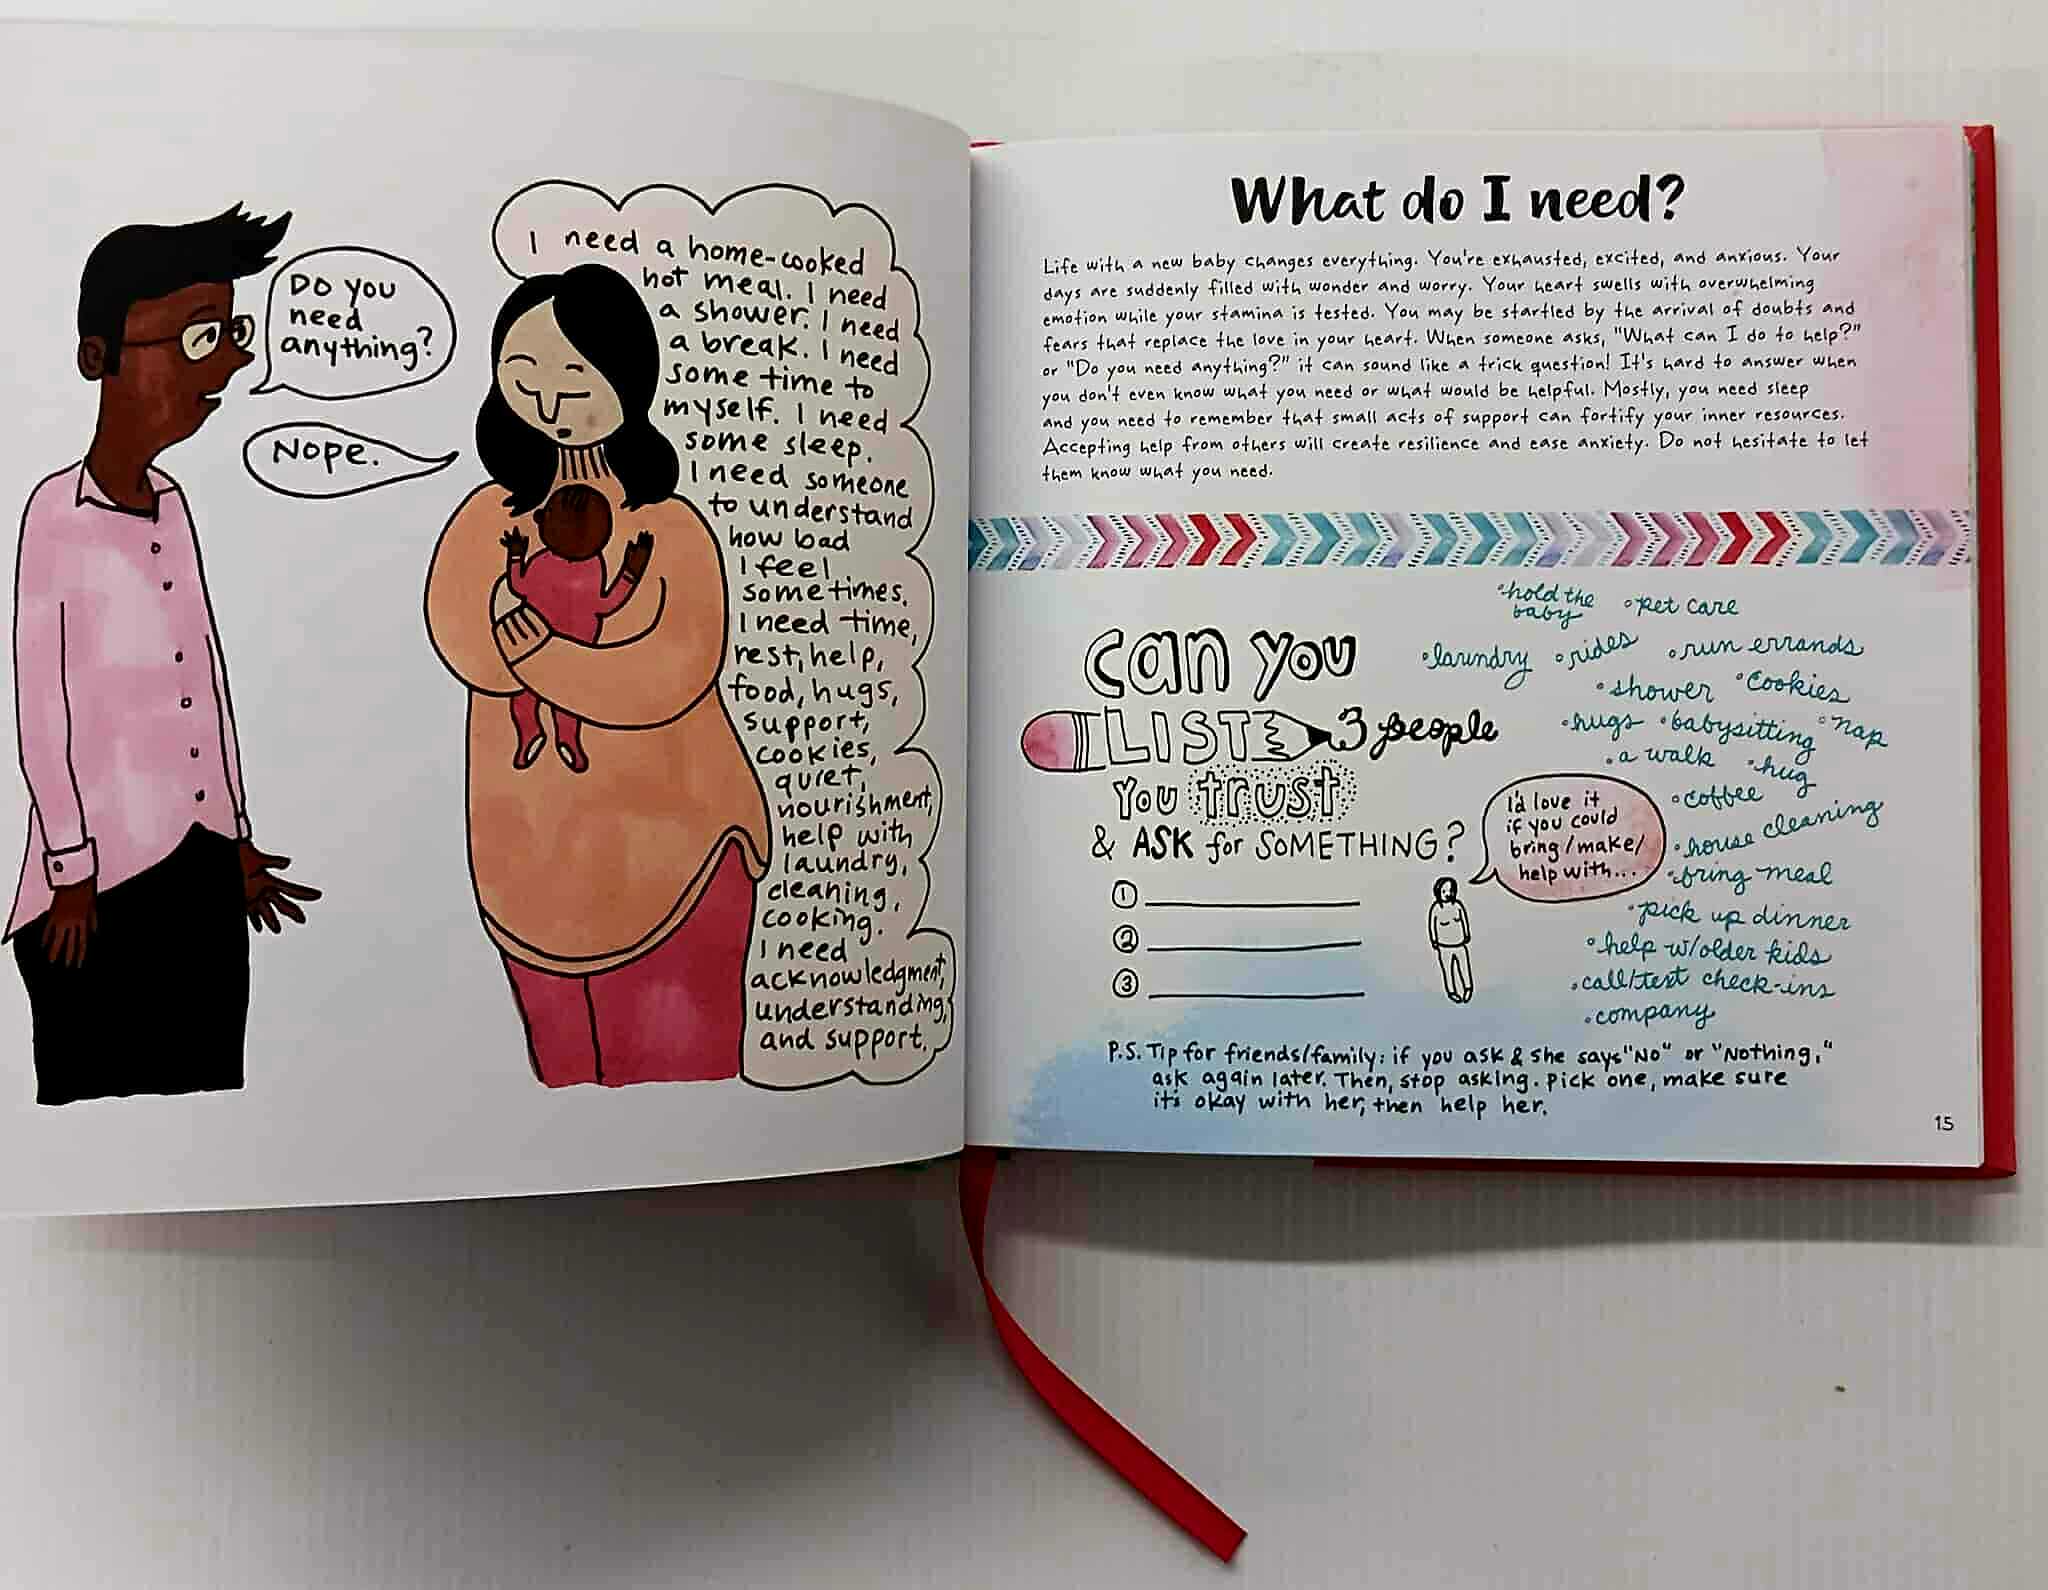 Do you
need
anything?
Nope.
I need a home-cooked
hot meal. I need
a shower. I need
a break. I need
some time to
myself. I need
some sleep.
I need someone
to understand
how bad
I feel
sometimes.
I need time,
rest, help,
food, hugs,
support,
cookies,
quiet,
nourishment,
help with
laundry,
cleaning,
cooking.
I need
acknowledgment,
understanding,
and support.
What do I need?
Life with a new baby changes everything. You're exhausted, excited, and anxious. Your
days are suddenly filled with wonder and worry. Your heart swells with overwhelming
emotion while your stamina is tested. You may be startled by the arrival of doubts and
fears that replace the love in your heart. When someone asks, "What can I do to help?"
or "Do you need anything?" it can sound like a trick question! It's hard to answer when
you don't even know what you need or what would be helpful. Mostly, you need sleep
and you need to remember that small acts of support can fortify your inner resources.
Accepting help from others will create resilience and ease anxiety. Do not hesitate to let
them know what you need.
can you
LIST 3 people
you trust
& ASK for SOMETHING?
1
2
3
I'd love it
if you could
bring/make/
help with...
•hold the
baby
•pet care
•laundry •rides •run errands
•shower •cookies
•hugs •babysitting •nap
•a walk •hug
•coffee
•house cleaning
•bring meal
•pick up dinner
•help w/older kids
•call/text check-ins
•company
P.S. Tip for friends/family: if you ask & she says "No" or "Nothing,"
ask again later. Then, stop asking. Pick one, make sure
it's okay with her, then help her.
15